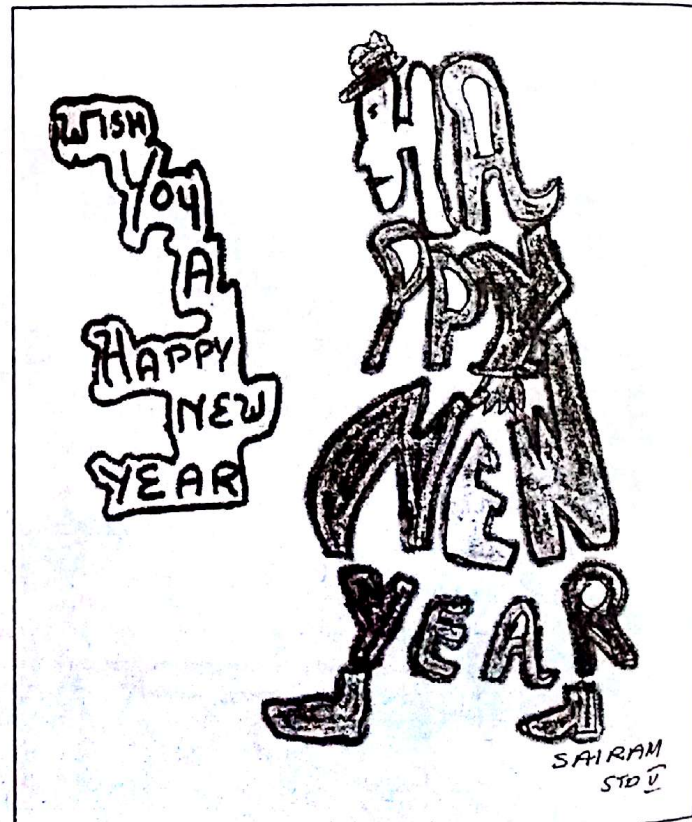 WISH
YOU
A
HAPPY
NEW
YEAR
HA
PPY
NEW
YEAR
SAIRAM
STD V